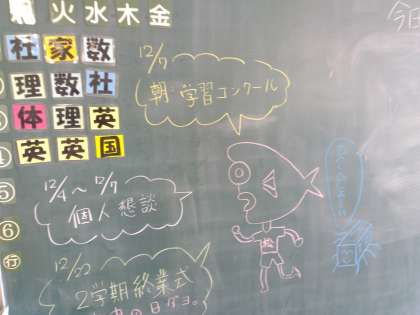 火水木金
今日
社家数
理数社
体理英
英英国
⑤
⑥
行
12/7
朝 学習コンクール
12/4〜12/7
個人想談
12/22
2学期終業式
の日ダヨ。
松